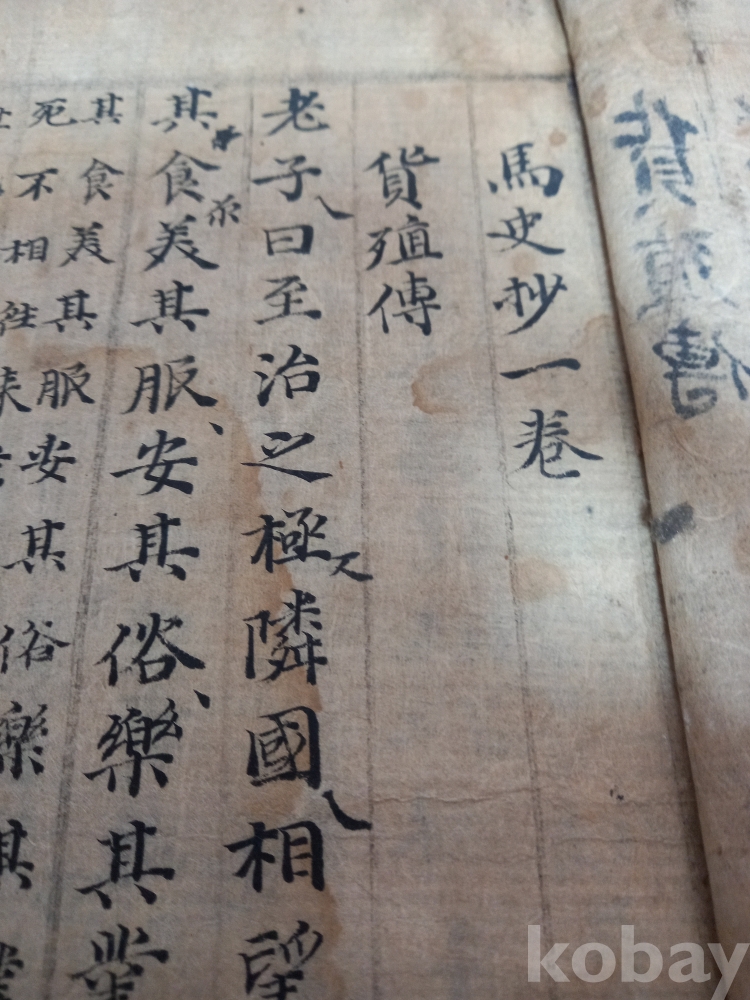 貨殖傳
馬史抄一卷
貨殖傳
老子曰至治之極隣國相望
其食美其服安其俗樂其業
其食美其服安其俗樂其
死不相往